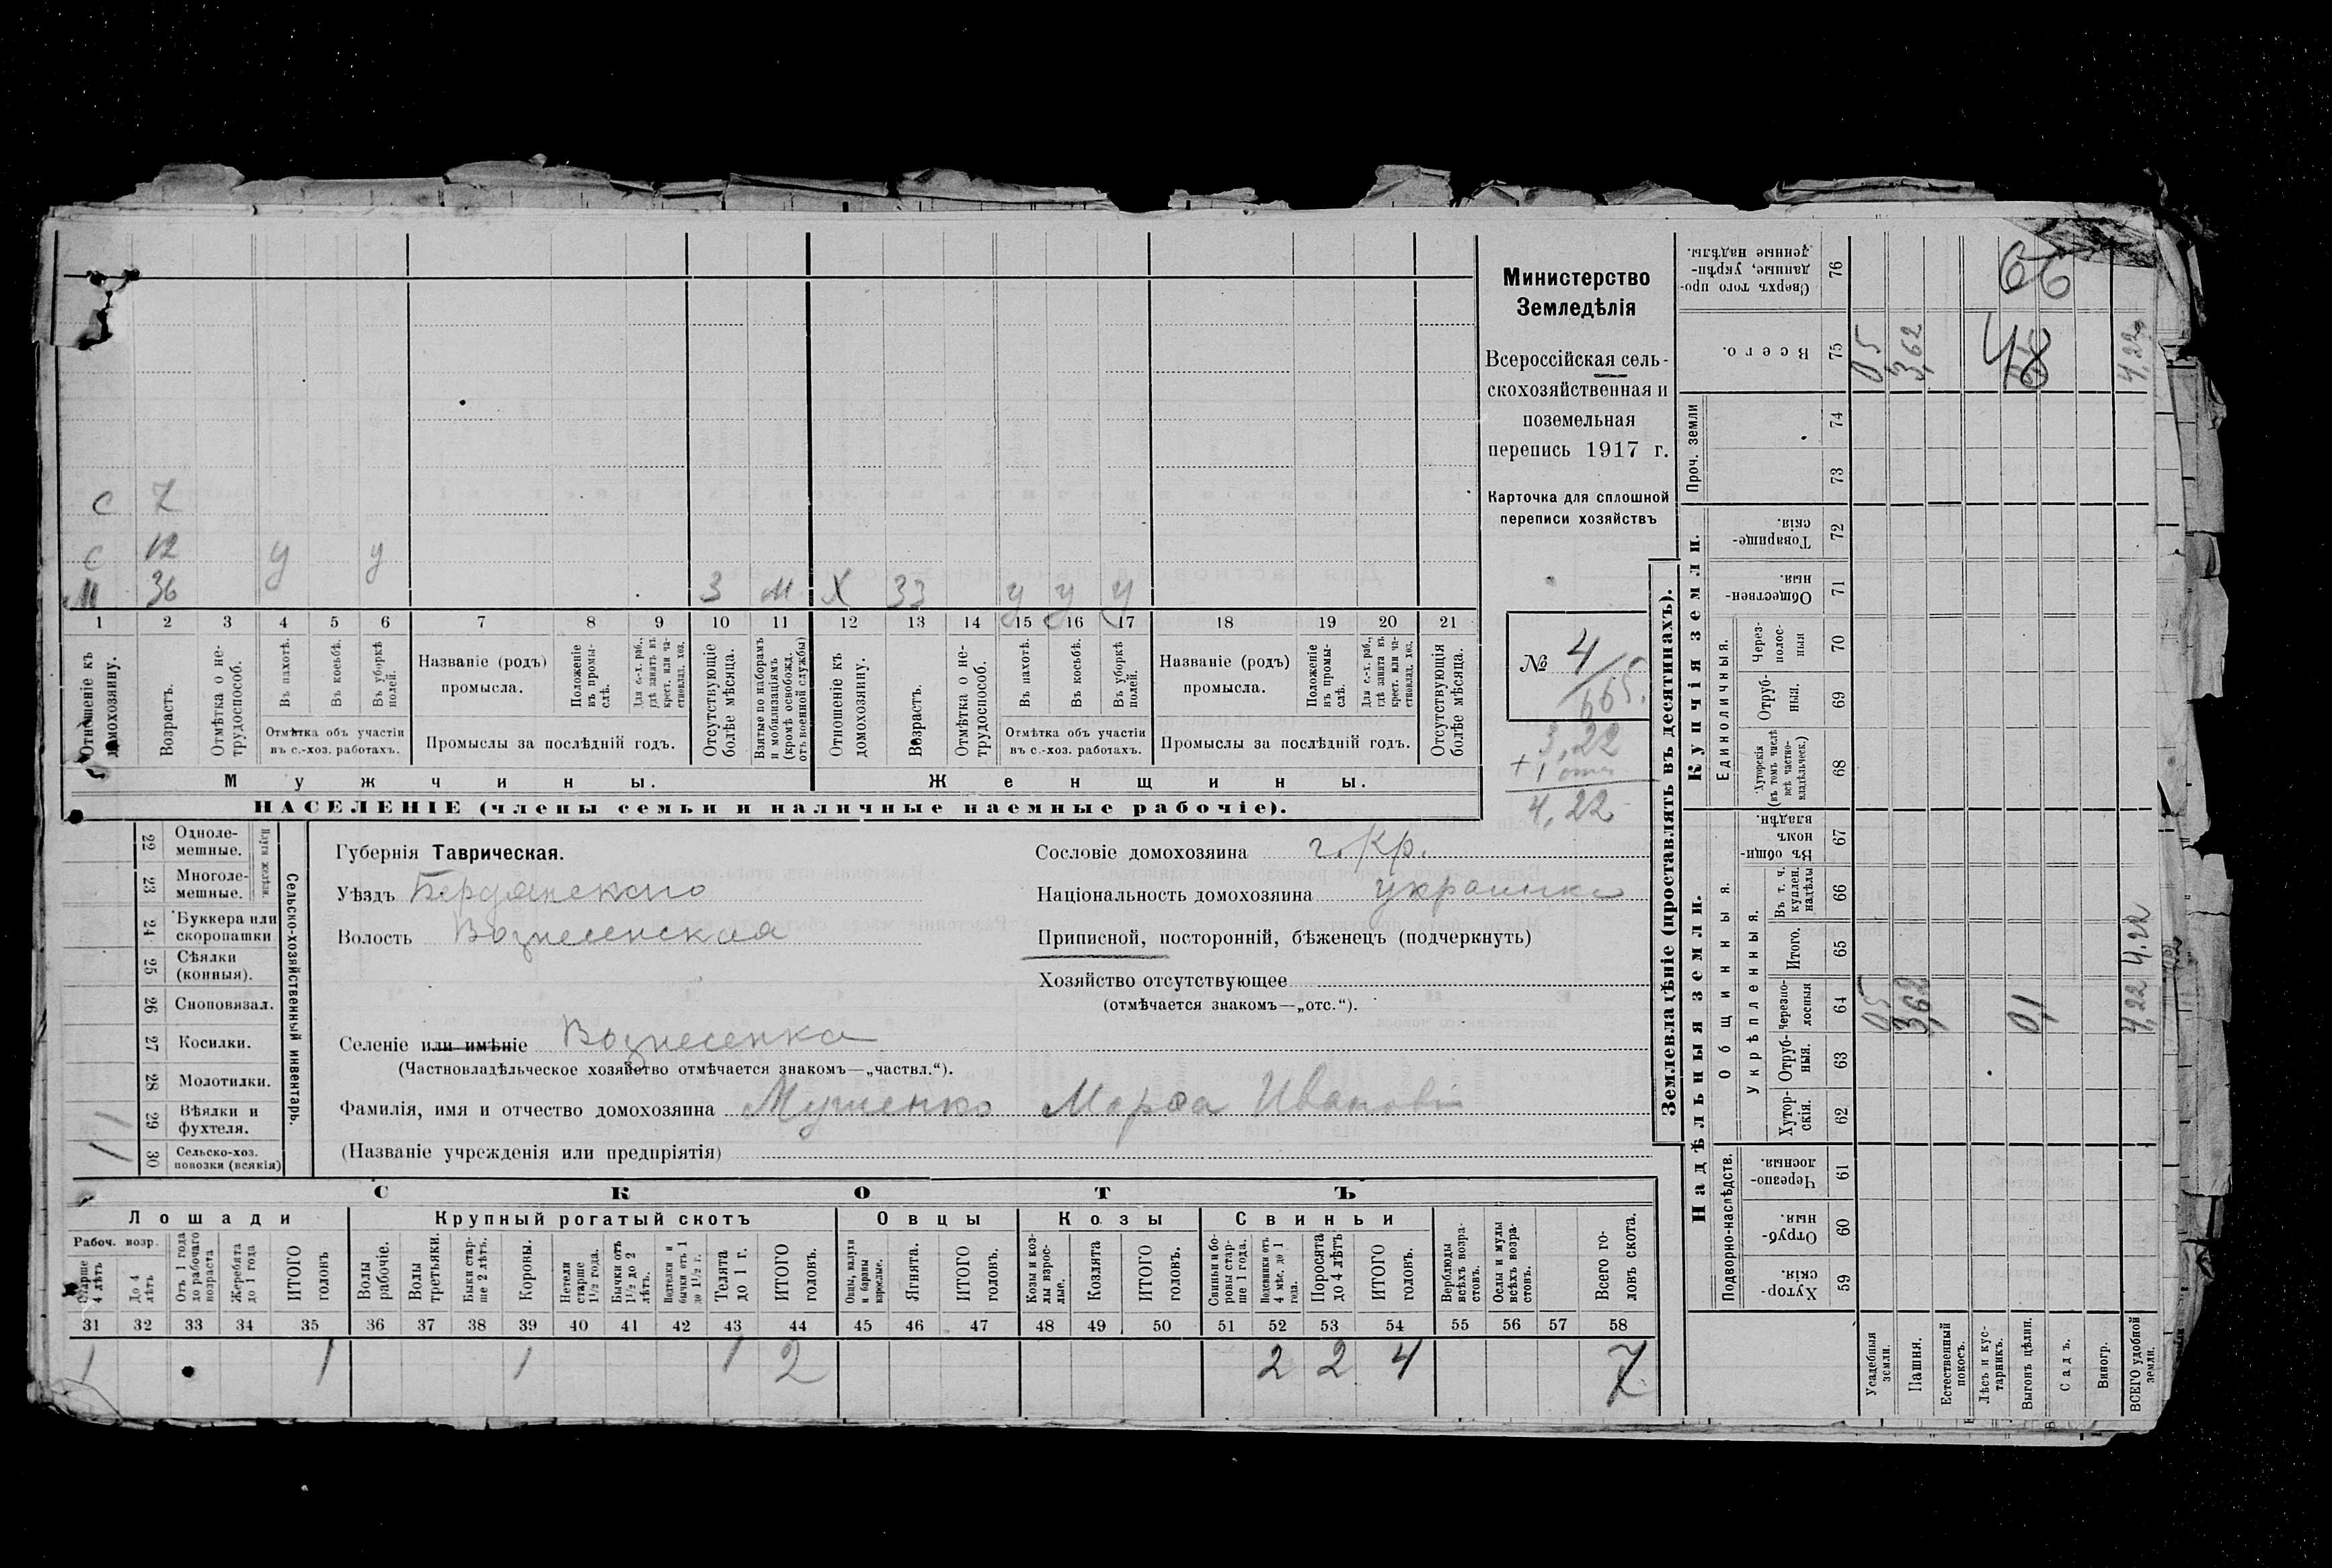 С 7
С 12 у у
М 36 3 м Х 33 у у у
1 2 3 4 5 6 7 8 9 10 11 12 13 14 15 16 17 18 19 20 21
Отношеніе къ домохозяину.
Возрастъ.
Отмѣтка о не-трудоспособ.
Въ пахотѣ.
Въ косьбѣ.
Въ уборкѣ полей.
Отмѣтка объ участіи
въ с.-хоз. работахъ.
Названіе (родъ)
промысла.
Положеніе въ промы-слѣ.
Для с.-х. раб., гдѣ занятъ въ крест. или ча-стновлад. хоз.
Промыслы за послѣдній годъ.
Отсутствующіе болѣе мѣсяца.
Взятые по наборамъ и мобилизаціямъ (кромѣ освобожд. отъ военной службы)
Отношеніе къ домохозяину.
Возрастъ.
Отмѣтка о не-трудоспособ.
Въ пахотѣ.
Въ косьбѣ.
Въ уборкѣ полей.
Отмѣтка объ участіи
въ с.-хоз. работахъ.
Названіе (родъ)
промысла.
Положеніе въ промы-слѣ.
Для с.-х. раб., гдѣ занята въ крест. или ча-стновлад. хоз.
Промыслы за послѣдній годъ.
Отсутствующія болѣе мѣсяца.
Мужчины. Женщины.
НАСЕЛЕНІЕ (члены семьи и наличные наемные рабочіе).
Министерство
Земледѣлія
Всероссійская сель-
скохозяйственная и
поземельная
перепись 1917 г.
Карточка для сплошной
переписи хозяйствъ
№ 4
165.
3,22
+ 1
4,22
22 Одноле-мешные.
23 Многоле-мешные.
Плуги желѣзн.
24 Буккера или скоропашки
25 Сѣялки (конныя).
26 Сноповязал.
27 Косилки.
28 Молотилки.
29 Вѣялки и фухтеля.
1
30 Сельско-хоз. повозки (всякія)
1
Сельско-хозяйственный инвентарь.
Губернія Таврическая.
Уѣздъ Бердянского
Волость Вознесенская
Селеніе или имѣніе Вознесенка
(Частновладѣльческое хозяйство отмѣчается знакомъ—„частвл.“).
Фамилія, имя и отчество домохозяина Мушенко Марфа Ивановн
(Названіе учрежденія или предпріятія)
Сословіе домохозяина г. Кр.
Національность домохозяина украинка
Приписной, посторонній, бѣженецъ (подчеркнуть)
Хозяйство отсутствующее
(отмѣчается знакомъ—„отс.“).
СКОТЪ
Лошади Крупный рогатый скотъ Овцы Козы Свиньи
Рабоч. возр.
Старше 4 лѣтъ
До 4 лѣтъ
Отъ 1 года до рабочаго возраста
Жеребята до 1 года
ИТОГО головъ
Волы рабочіе.
Волы третьяки.
Быки стар-ше 2 лѣтъ.
Коровы.
Нетели старше 1½ года.
Бычки отъ 1½ до 2 лѣтъ.
Телки и бычки отъ 1 до 1½ г.
Телята до 1 г.
ИТОГО головъ.
Овцы, валухи и бараны взрослые.
Ягнята.
ИТОГО головъ.
Козы и коз-лы взрос-лые.
Козлята
ИТОГО головъ.
Свиньи и бо-ровы стар-ше 1 года.
Подсвинки отъ 4 мѣс. до 1 года.
Поросята до 4 лѣтъ
ИТОГО головъ.
Верблюды всѣхъ возра-стовъ.
Ослы и мулы всѣхъ возра-стовъ.
Всего го-ловъ скота.
31 32 33 34 35 36 37 38 39 40 41 42 43 44 45 46 47 48 49 50 51 52 53 54 55 56 57 58
1 1 1 1 2 2 2 4 7
Землевладѣніе (проставлять въ десятинахъ).
Надѣльныя земли. Купчія земли. Проч. земли
Подворно-наслѣдств.
Общинныя.
Укрѣпленныя.
Единоличныя.
59 Хутор-скія
60 Отруб-ныя.
61 Черезпо-лосныя.
62 Хутор-скія.
63 Отруб-ныя.
64 Черезпо-лосныя
65 Итого.
66 Въ т. ч. куплен. надѣлы
67 Въ общин-номъ владѣн.
68 Хуторскія (въ томъ числѣ всѣ частно-владѣльческ.)
69 Отруб-ныя.
70 Через-полос-ныя
71 Обществен-ныя.
72 Товарище-скія.
73
74
75 Всего.
76 Сверхъ того про-данные, укрѣп-ленные надѣлы.
Усадебныя земли. 05 05
Пашня. 3,62 3,62
Естественный покосъ.
Лѣсъ и кус-тарникъ.
Выгонъ цѣлин. 01
Садъ.
Виногр.
ВСЕГО удобной земли. 4,22 4,22 4,22
48
66